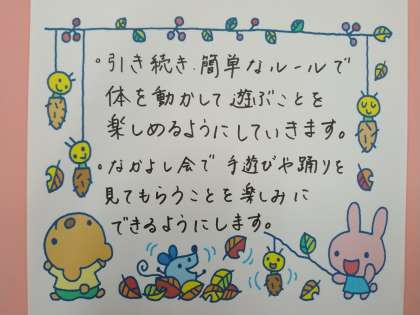 ・引き続き、簡単なルールで
体を動かして遊ぶことを
楽しめるようにしていきます。
・なかよし会で手遊びや踊りを
見てもらうことを楽しみに
できるようにします。